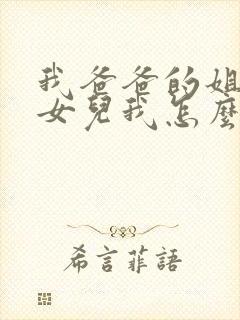 我爸爸的姐
女兒我怎麼
希言菲語